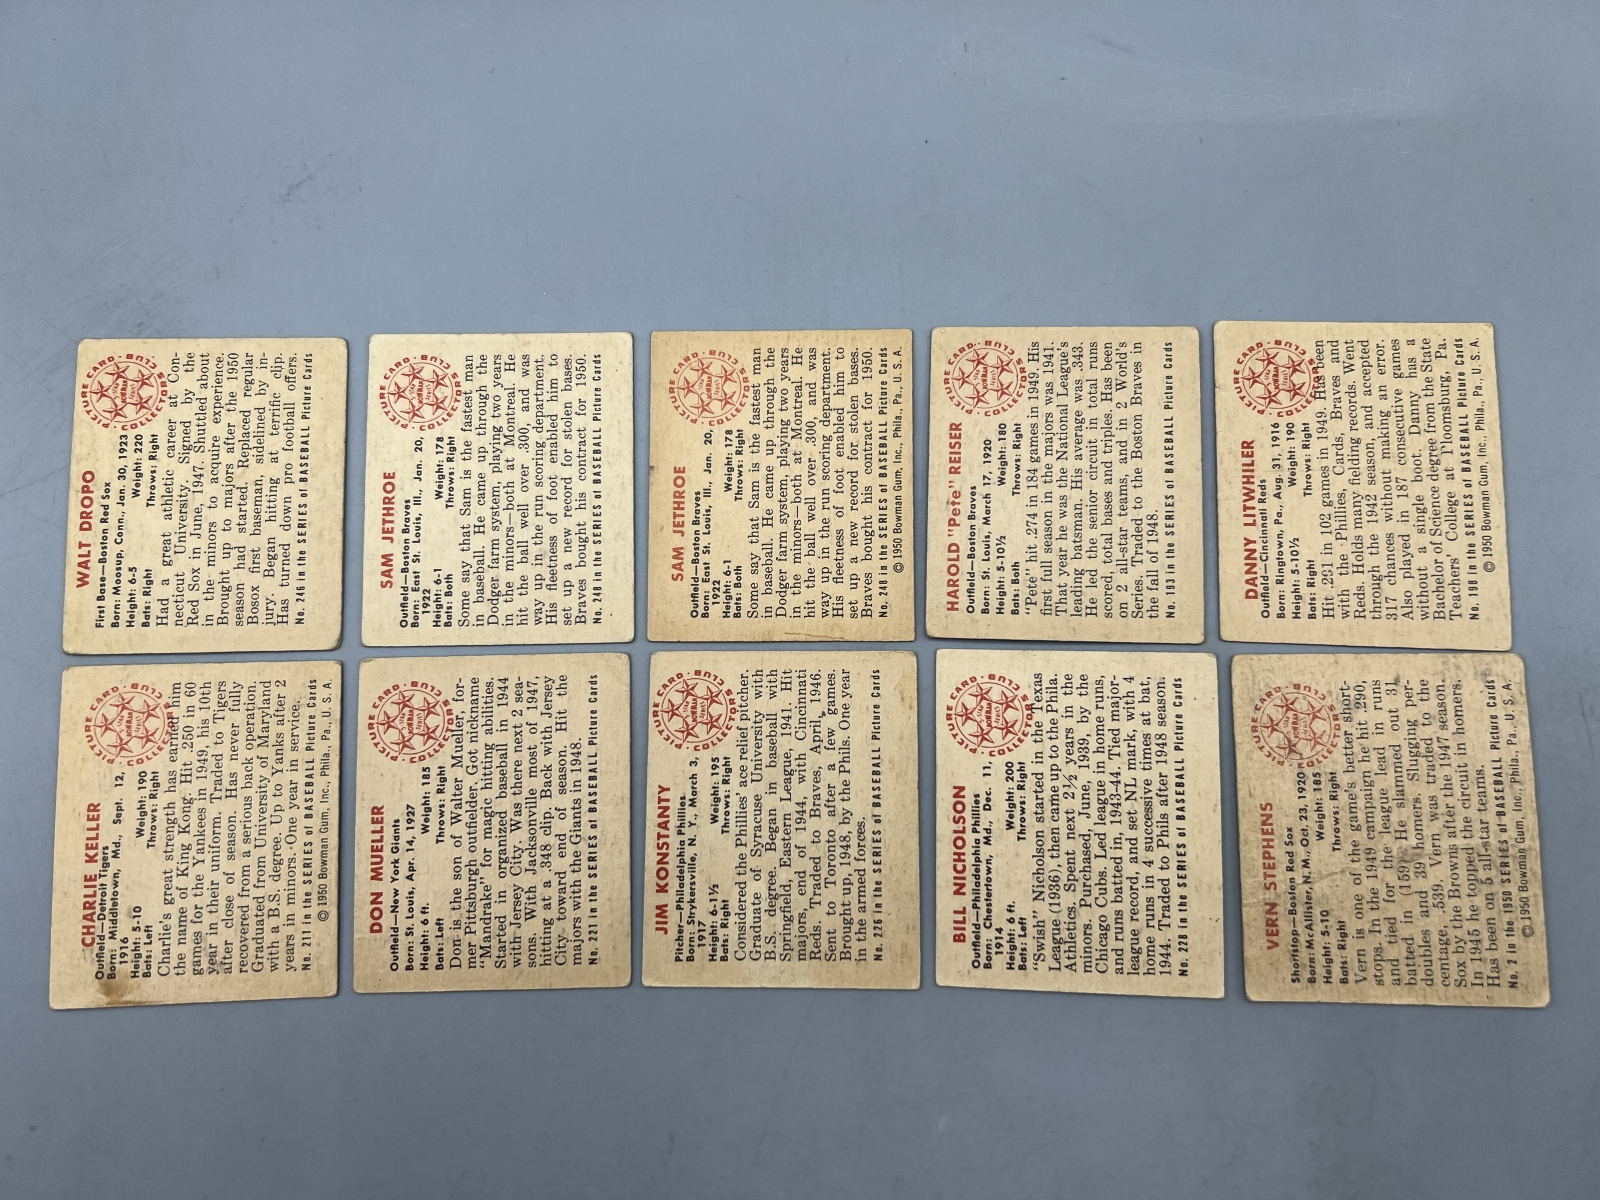 WALT DROPO
First Base—Boston Red Sox
Born: Moosup, Conn., Jan. 30, 1923
Height: 6-5 Weight: 220
Bats: Right Throws: Right
Had a great athletic career at Con-
necticut University. Signed by the
Red Sox in June, 1947. Shuttled about
in the minors to acquire experience.
Brought up to majors after the 1950
season had started. Replaced regular
Bosox first baseman, sidelined by in-
jury. Began hitting at terrific clip.
Has turned down pro football offers.
No. 246 in the SERIES of BASEBALL Picture Cards
PICTURE CARD COLLECTORS CLUB
SAM JETHROE
Outfield—Boston Braves
Born: East St. Louis, Ill., Jan. 20,
1922
Height: 6-1 Weight: 178
Bats: Both Throws: Right
Some say that Sam is the fastest man
in baseball. He came up through the
Dodger farm system, playing two years
in the minors—both at Montreal. He
hit the ball well over .300, and was
way up in the run scoring department.
His fleetness of foot enabled him to
set up a new record for stolen bases.
Braves bought his contract for 1950.
No. 248 in the SERIES of BASEBALL Picture Cards
PICTURE CARD COLLECTORS CLUB
SAM JETHROE
Outfield—Boston Braves
Born: East St. Louis, Ill., Jan. 20,
1922
Height: 6-1 Weight: 178
Bats: Both Throws: Right
Some say that Sam is the fastest man
in baseball. He came up through the
Dodger farm system, playing two years
in the minors—both at Montreal. He
hit the ball well over .300, and was
way up in the run scoring department.
His fleetness of foot enabled him to
set up a new record for stolen bases.
Braves bought his contract for 1950.
No. 248 in the SERIES of BASEBALL Picture Cards
© 1950 Bowman Gum, Inc., Phila., Pa., U. S. A.
PICTURE CARD COLLECTORS CLUB
HAROLD "Pete" REISER
Outfield—Boston Braves
Born: St. Louis, March 17, 1920
Height: 5-10½ Weight: 180
Bats: Both Throws: Right
"Pete" hit .274 in 184 games in 1949. His
first full season in the majors was 1941.
That year he was the National League's
leading batsman. His average was .343.
He led the senior circuit in total runs
scored, total bases and triples. Has been
on 2 all-star teams, and in 2 World's
Series. Traded to the Boston Braves in
the fall of 1948.
No. 193 in the SERIES of BASEBALL Picture Cards
PICTURE CARD COLLECTORS CLUB
DANNY LITWHILER
Outfield—Cincinnati Reds
Born: Ringtown, Pa., Aug. 31, 1916
Height: 5-10½ Weight: 190
Bats: Right Throws: Right
Hit .291 in 102 games in 1949. Has been
with the Phillies, Cards, Braves and
Reds. Holds many fielding records. Went
through the 1942 season, and accepted
317 chances without making an error.
Also played in 187 consecutive games
without a single boot. Danny has a
Bachelor of Science degree from the State
Teachers' College at Bloomsburg, Pa.
No. 198 in the SERIES of BASEBALL Picture Cards
© 1950 Bowman Gum, Inc., Phila., Pa., U. S. A.
PICTURE CARD COLLECTORS CLUB
CHARLIE KELLER
Outfield—Detroit Tigers
Born: Middletown, Md., Sept. 12,
1916
Height: 5-10 Weight: 190
Bats: Left Throws: Right
Charlie's great strength has earned him
the name of King Kong. Hit .250 in 60
games for the Yankees in 1949, his 10th
year in their uniform. Traded to Tigers
after close of season. Has never fully
recovered from a serious back operation.
Graduated from University of Maryland
with a B.S. degree. Up to Yanks after 2
years in minors. One year in service.
No. 211 in the SERIES of BASEBALL Picture Cards
© 1950 Bowman Gum, Inc., Phila., Pa., U. S. A.
PICTURE CARD COLLECTORS CLUB
DON MUELLER
Outfield—New York Giants
Born: St. Louis, Apr. 14, 1927
Height: 6 ft. Weight: 185
Bats: Left Throws: Right
Don is the son of Walter Mueller, for-
mer Pittsburgh outfielder. Got nickname
"Mandrake" for magic hitting abilities.
Started in organized baseball in 1944
with Jersey City. Was there next 2 sea-
sons. With Jacksonville most of 1947,
hitting at a .348 clip. Back with Jersey
City toward end of season. Hit the
majors with the Giants in 1948.
No. 221 in the SERIES of BASEBALL Picture Cards
PICTURE CARD COLLECTORS CLUB
JIM KONSTANTY
Pitcher—Philadelphia Phillies
Born: Strykersville, N. Y., March 3,
1917
Height: 6-1½ Weight: 195
Bats: Right Throws: Right
Considered the Phillies ace relief pitcher.
Graduate of Syracuse University with
B.S. degree. Began in baseball with
Springfield, Eastern League, 1941. Hit
majors, end of 1944, with Cincinnati
Reds. Traded to Braves, April, 1946.
Sent to Toronto after a few games.
Brought up, 1948, by the Phils. One year
in the armed forces.
No. 226 in the SERIES of BASEBALL Picture Cards
PICTURE CARD COLLECTORS CLUB
BILL NICHOLSON
Outfield—Philadelphia Phillies
Born: Chestertown, Md., Dec. 11,
1914
Height: 6 ft. Weight: 200
Bats: Left Throws: Right
"Swish" Nicholson started in the Texas
League (1936), then came up to the Phila.
Athletics. Spent next 2½ years in the
minors. Purchased, June, 1939, by the
Chicago Cubs. Led league in home runs,
and runs batted in, 1943-44. Tied major-
league record, and set NL mark, with 4
home runs in 4 successive times at bat,
1944. Traded to Phils after 1948 season.
No. 228 in the SERIES of BASEBALL Picture Cards
PICTURE CARD COLLECTORS CLUB
VERN STEPHENS
Shortstop—Boston Red Sox
Born: McAllister, N. M., Oct. 23, 1920
Height: 5-10 Weight: 185
Bats: Right Throws: Right
Vern is one of the game's better short-
stops. In the 1949 campaign he hit .290,
and tied for the league lead in runs
batted in (159). He slammed out 31
doubles and 39 homers. Slugging per-
centage, .539. Vern was traded to the
Sox by the Browns after the 1947 season.
In 1945 he topped the circuit in homers.
Has been on 5 all-star teams.
No. 2 in the 1950 SERIES of BASEBALL Picture Cards
© 1950 Bowman Gum, Inc., Phila., Pa., U. S. A.
PICTURE CARD COLLECTORS CLUB